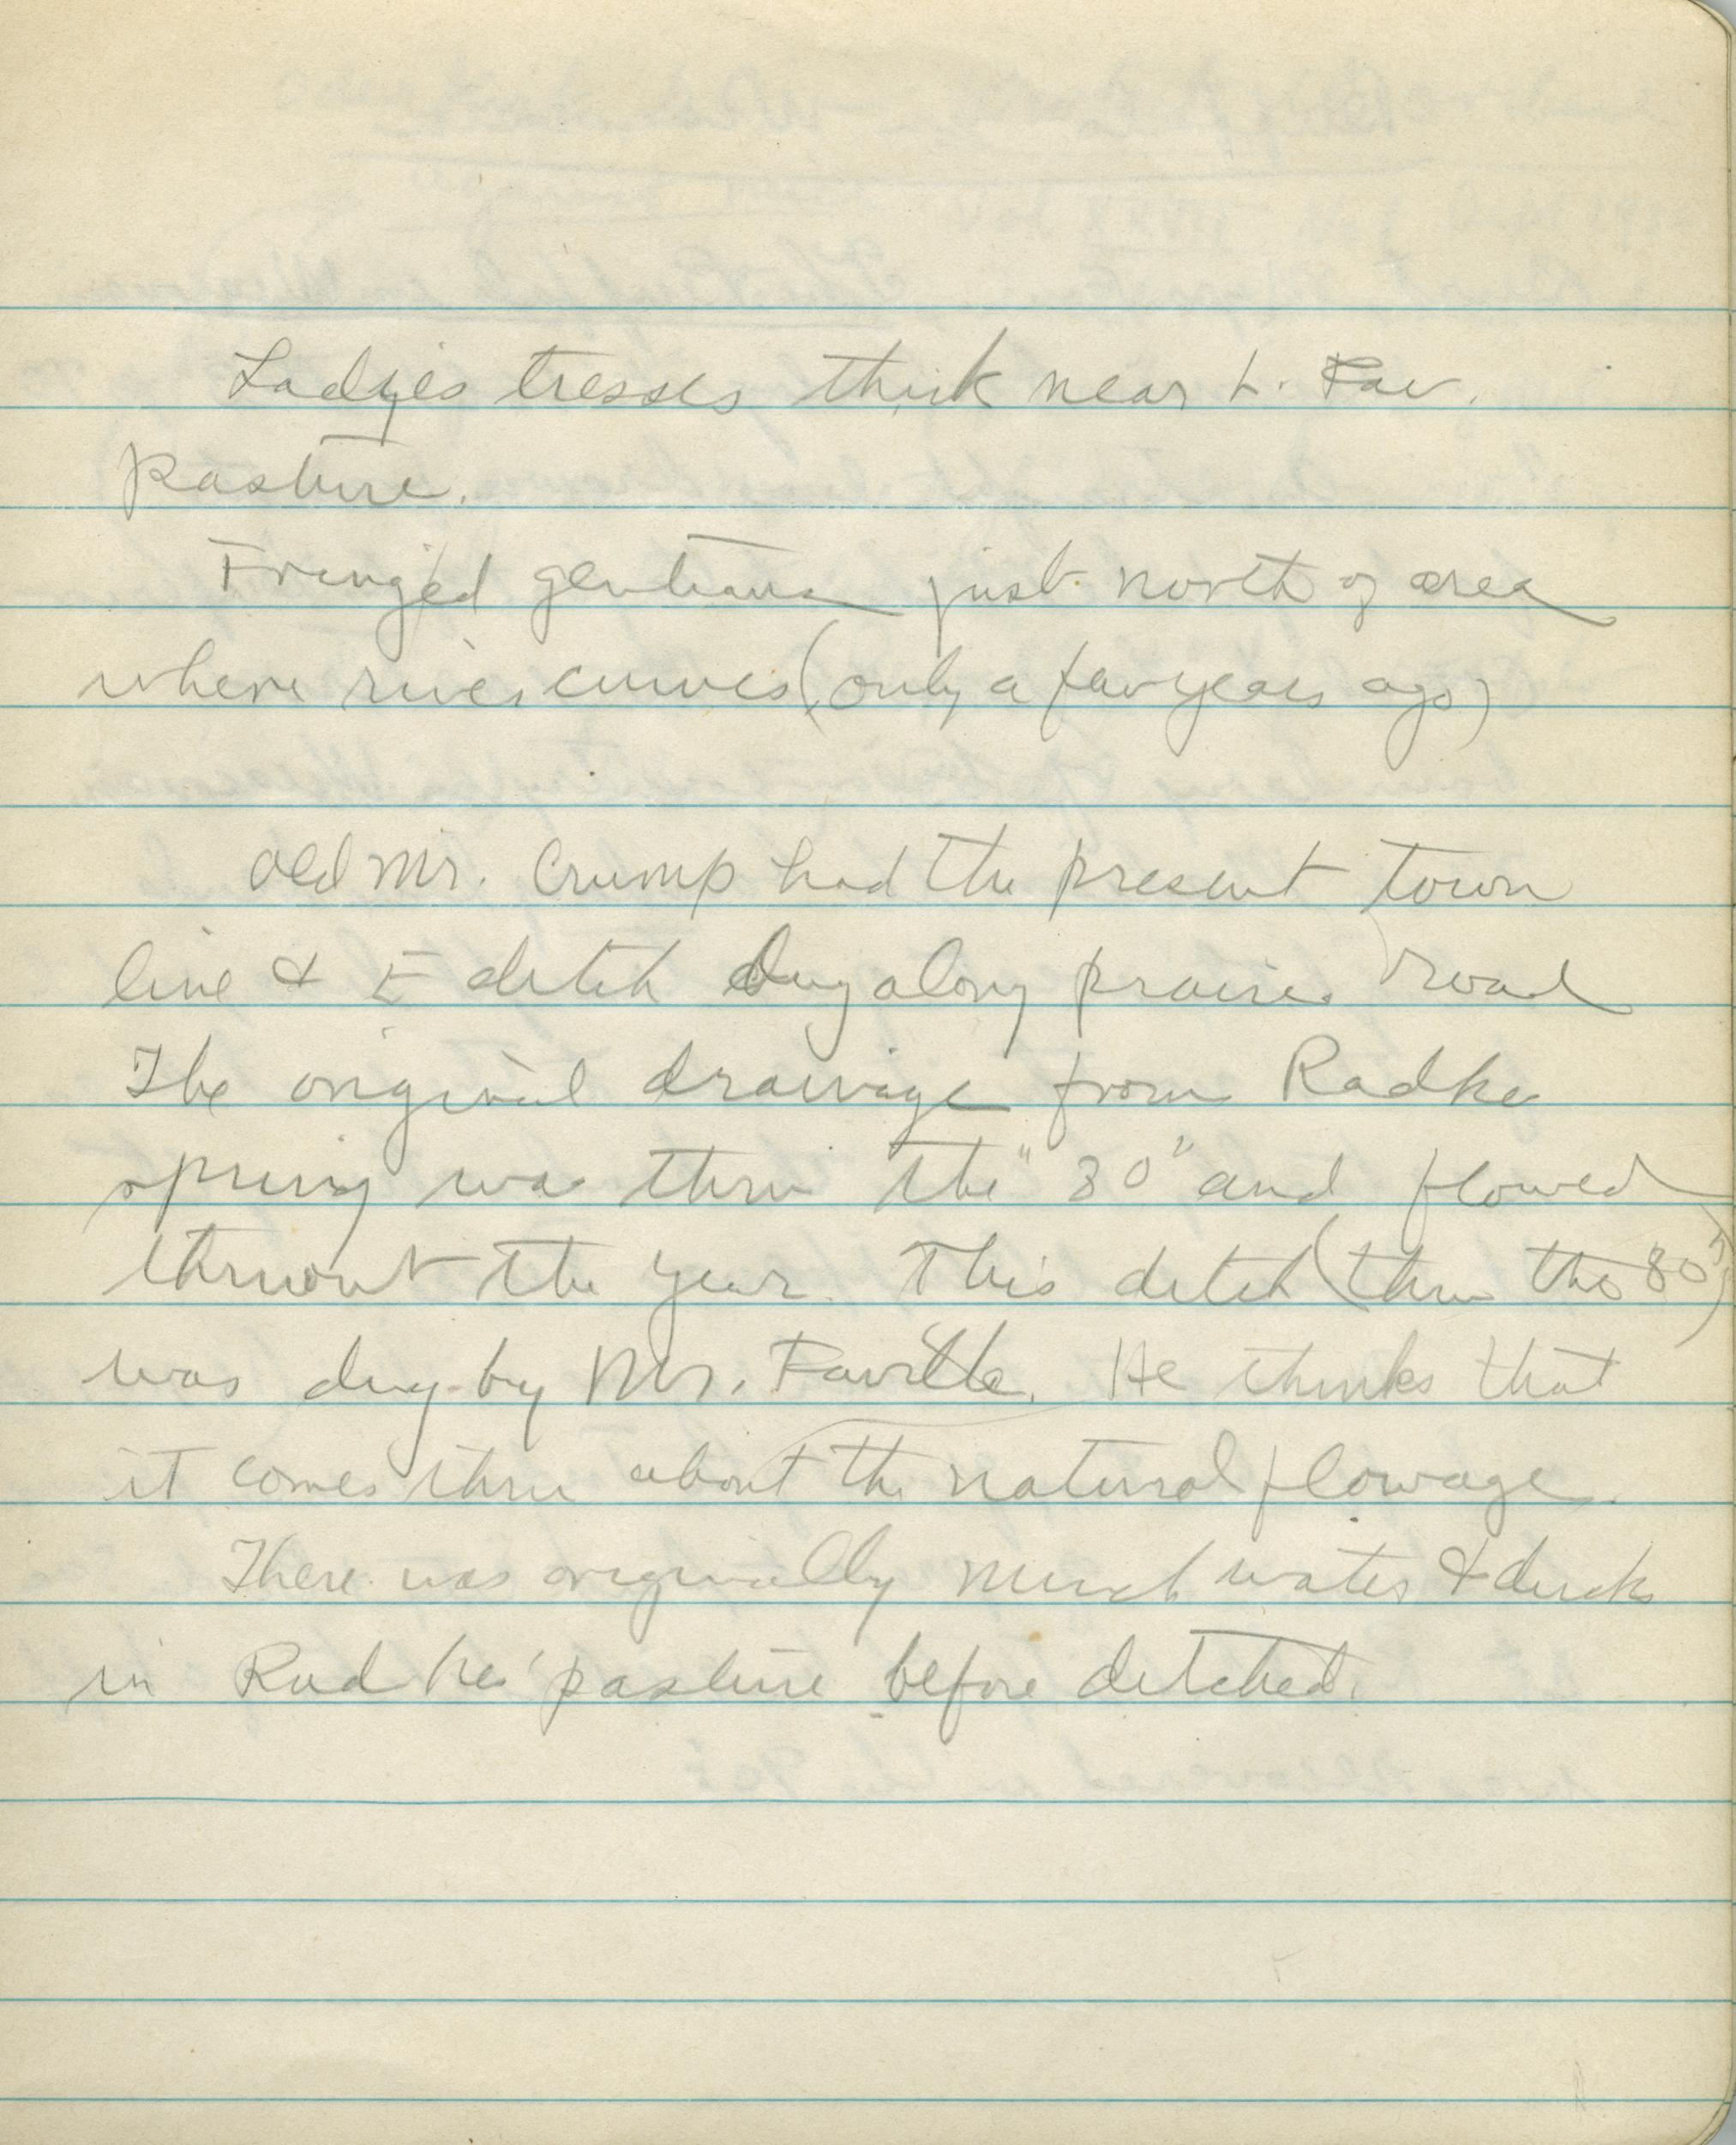 Ladyes tresses thick near L. Fav.
pasture.
Fringed gentians just north of area
where river curves (only a few years ago)
Old Mr. Crump had the present town
line & E ditch dug along prairie road
The original drainage from Radke
spring was thru the "80" and flowed
thruout the year. This ditch (thru the 80")
was dug by Mr. Faville. He thinks that
it comes thru about the natural flowage.
There was originally much water & ducks
in Radkes' pasture before ditched.